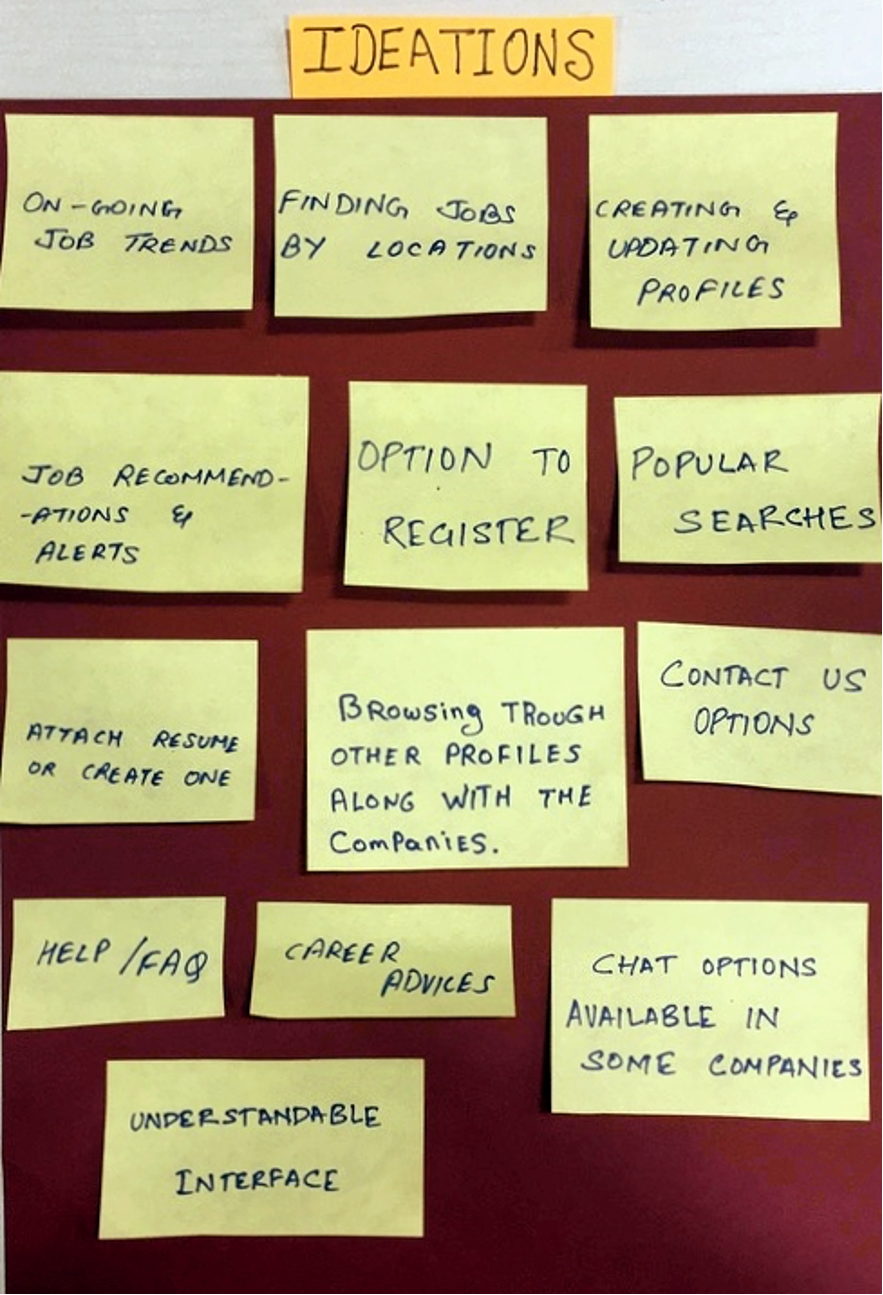 IDEATIONS
ON-GOING
JOB TRENDS
FINDING JOBS
BY LOCATIONS
CREATING &
UPDATING
PROFILES
JOB RECOMMEND-
-ATIONS &
ALERTS
OPTION TO
REGISTER
POPULAR
SEARCHES
ATTACH RESUME
OR CREATE ONE
BROwSing TROUGH
OTHER PROFILES
ALONG WITH THE
ComPaniES.
CONTACT US
OPTIONS
HELP/FAQ
CAREER
ADVICES
CHAT OPTIONS
AVAILABLE IN
SOME COMPANIES
UNDERSTANDABLE
INTERFACE